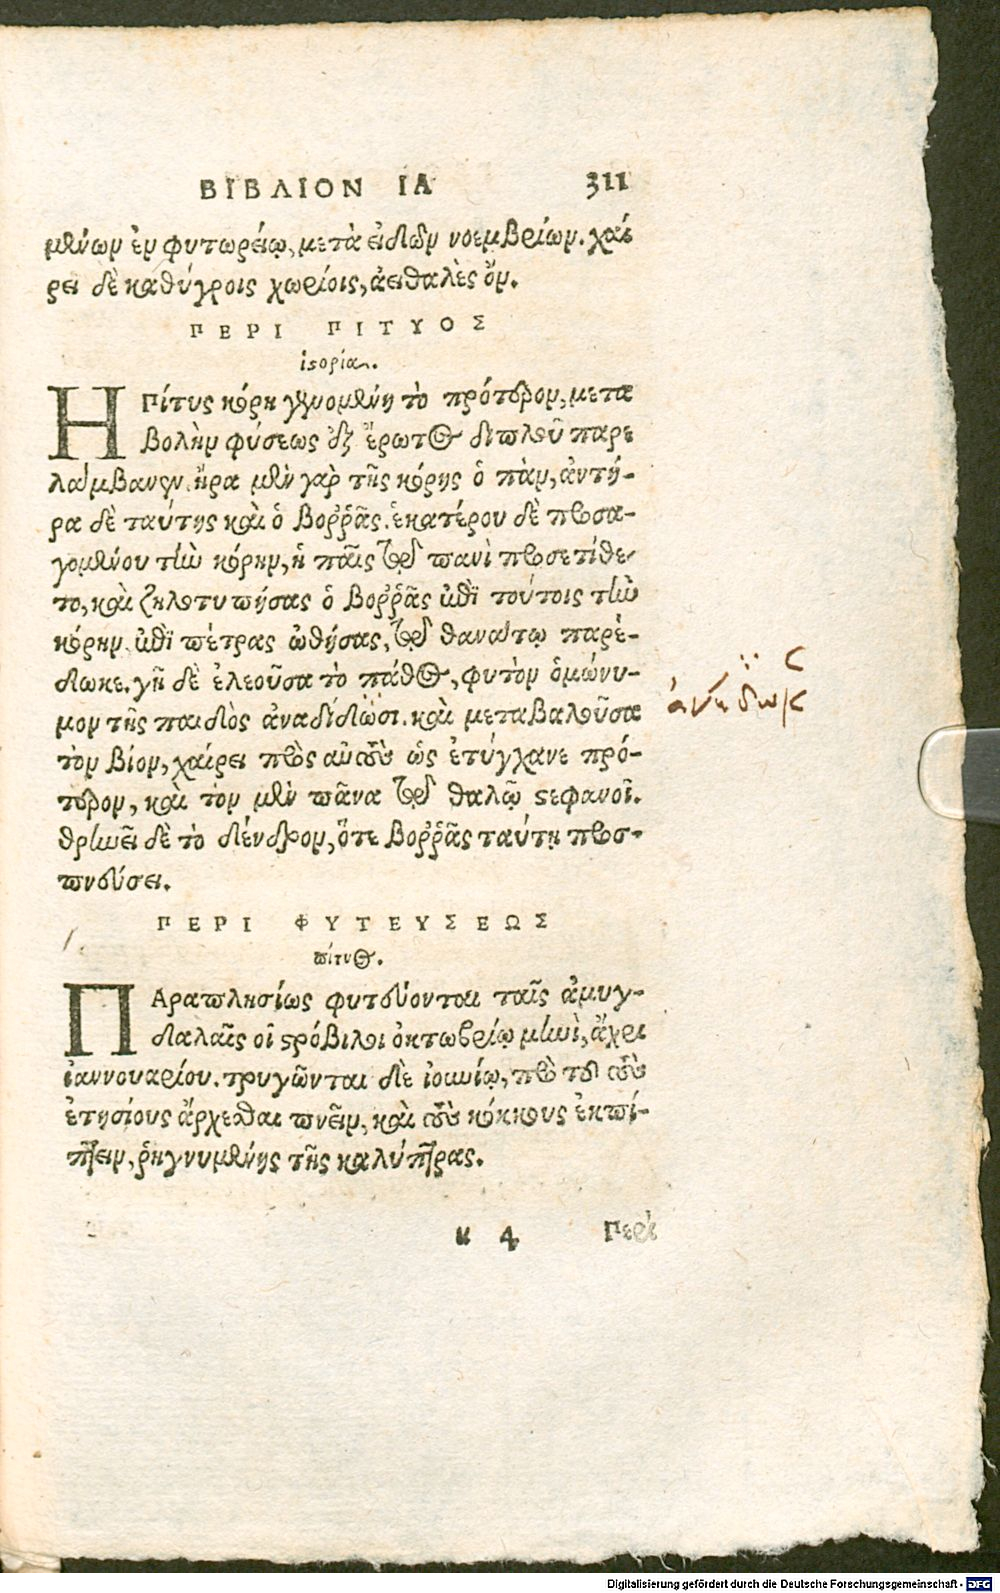 ΒΙΒΛΙΟΝ ΙΑ 311
μένων ἐν φυτωρείῳ, μετὰ εἰδῶν νοεμβρίων. χαί
ρει δὲ καθύγροις χωρίοις, ἀειθαλὲς ὄν.
ΠΕΡΙ ΠΙΤΥΟΣ
ἱστορία.
Η Πίτυς κόρη γινομένη τὸ πρότερον, μετα
βολὴν φύσεως ἐξ ἔρωτος διπλοῦ παρε
λάμβανεν. ἤρα μὲν γὰρ τῆς κόρης ὁ πὰν, ἀντή-
ρα δὲ ταύτης καὶ ὁ Βοῤῥᾶς. ἑκατέρου δὲ προσα-
γομένου τὴν κόρην, ἡ παῖς τῷ πανὶ προσετίθε
το, καὶ ζηλοτυπήσας ὁ Βοῤῥᾶς ἐπὶ τούτοις τὴν
κόρην, ἐπὶ πέτρας ὠθήσας, τῷ θανάτῳ παρέ-
δωκε. γῆ δὲ ἐλεοῦσα τὸ πάθος, φυτὸν ὁμώνυ-
μον τῆς παιδὸς ἀναδίδωσι. καὶ μεταβαλοῦσα
τὸν βίον, χαίρει πρὸς αὐτοὺς ὡς ἐτύγχανε πρό-
τερον, καὶ τὸν μὲν πᾶνα τῷ θαλῷ στεφανοῖ.
θρηνεῖ δὲ τὸ δένδρον, ὅτε Βοῤῥᾶς ταύτῃ προσ-
πνεύσει.
ΠΕΡΙ ΦΥΤΕΥΣΕΩΣ
πίτυος.
ΠΑραπλησίως φυτεύονται ταῖς ἀμυγ-
δαλαῖς οἱ στρόβιλοι ὀκτωβρίῳ μηνὶ, ἄχρι
ἰαννουαρίου. τρυγῶνται δὲ ἰουνίῳ, πρὸ τοῦ τοὺς
ἐτησίους ἄρχεσθαι πνεῖν, καὶ τοὺς κόκκους ἐκπί-
πτειν, ῥηγνυμένης τῆς καλύπτρας.
κ 4 Περὶ